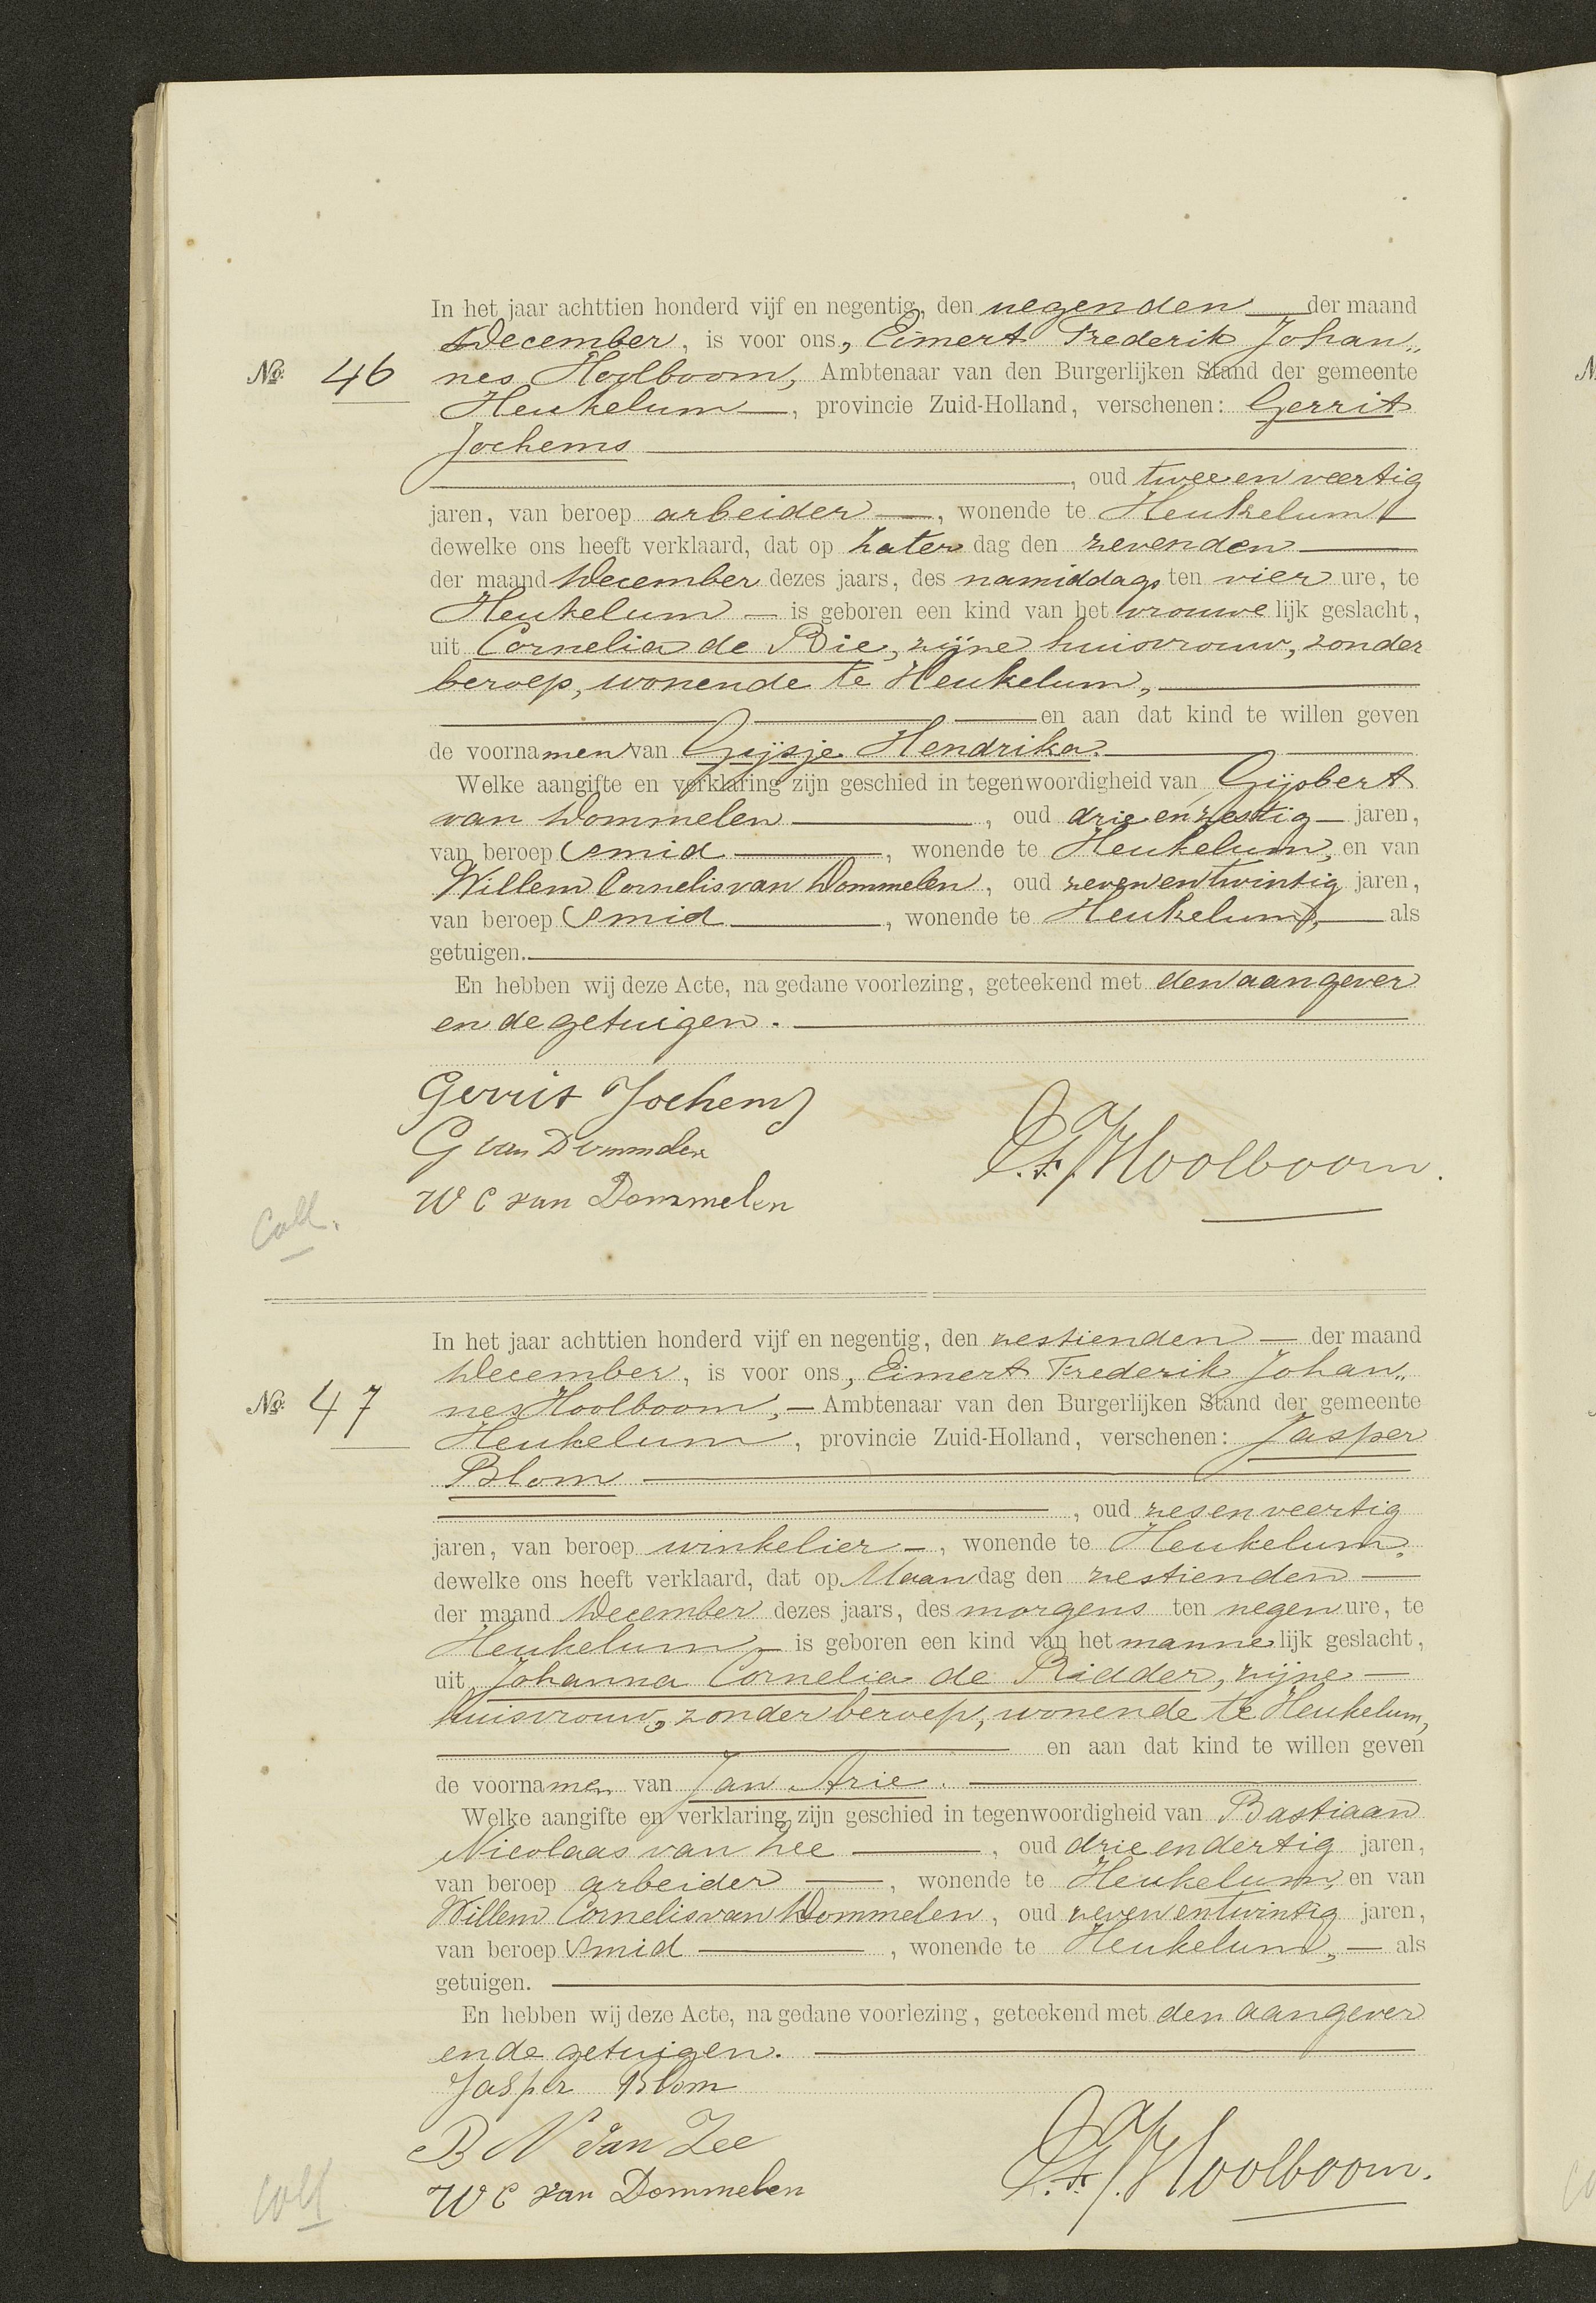 In het jaar achttien honderd vijf en negentig, den negenden der maand
December, is voor ons, Eimert Frederik Johan„
No. 46 nes Hoolboom, Ambtenaar van den Burgerlijken Stand der gemeente
Heukelum, provincie Zuid-Holland, verschenen: Gerrit
Jochems
, oud twee en veertig
jaren, van beroep arbeider, wonende te Heukelum
dewelke ons heeft verklaard, dat op Zaterdag den zevenden
der maand December dezes jaars, des namiddags ten vier ure, te
Heukelum is geboren een kind van het vrouwelijk geslacht,
uit Cornelia de Bie, zijne huisvrouw, zonder
beroep, wonende te Heukelum,
en aan dat kind te willen geven
de voornamen van Gijsje Hendrika.
Welke aangifte en verklaring zijn geschied in tegenwoordigheid van Gijsbert
van Dommelen, oud drie en zestig jaren,
van beroep smid, wonende te Heukelum, en van
Willem Cornelis van Dommelen, oud zeven en twintig jaren,
van beroep smid, wonende te Heukelum, als
getuigen.
En hebben wij deze Acte, na gedane voorlezing, geteekend met den aangever
en de getuigen.
Gerrit Jochems
G van Dommelen
E.F.J. Hoolboom.
W C van Dommelen
Coll.
In het jaar achttien honderd vijf en negentig, den zestienden der maand
December, is voor ons, Eimert Frederik Johan„
No. 47 nes Hoolboom, Ambtenaar van den Burgerlijken Stand der gemeente
Heukelum, provincie Zuid-Holland, verschenen: Jasper
Blom
, oud zes en veertig
jaren, van beroep winkelier, wonende te Heukelum,
dewelke ons heeft verklaard, dat op Maandag den zestienden
der maand December dezes jaars, des morgens ten negen ure, te
Heukelum is geboren een kind van het mannelijk geslacht,
uit Johanna Cornelia de Ridder, zijne
huisvrouw, zonder beroep, wonende te Heukelum,
en aan dat kind te willen geven
de voornamen van Jan Arie.
Welke aangifte en verklaring zijn geschied in tegenwoordigheid van Bastiaan
Nicolaas van Zee, oud drie en dertig jaren,
van beroep arbeider, wonende te Heukelum, en van
Willem Cornelis van Dommelen, oud zeven en twintig jaren,
van beroep smid, wonende te Heukelum, als
getuigen.
En hebben wij deze Acte, na gedane voorlezing, geteekend met den aangever
en de getuigen.
Jasper Blom
B N van Zee
E.F.J. Hoolboom.
W C van Dommelen
Coll